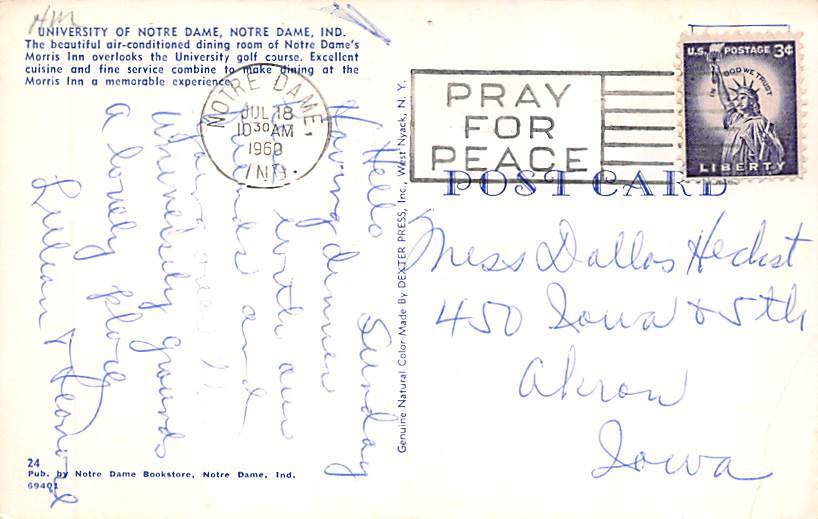 HM
UNIVERSITY OF NOTRE DAME, NOTRE DAME, IND.
The beautiful air-conditioned dining room of Notre Dame's
Morris Inn overlooks the University golf course. Excellent
cuisine and fine service combine to make dining at the
Morris Inn a memorable experience.
NOTRE DAME,
JUL 18
10 30 AM
1960
IND.
PRAY
FOR
PEACE
U.S. POSTAGE 3¢
IN GOD WE TRUST
LIBERTY
POST CARD
Sunday
Hello
Having dinner
with our
friends and
University grounds
a lovely place
Lillian & Leonore
Genuine Natural Color Made By DEXTER PRESS, Inc., West Nyack, N. Y.
Miss Dallas Heckt
450 Iowa & 5th
Akron
Iowa
24
Pub. by Notre Dame Bookstore, Notre Dame, Ind.
69401